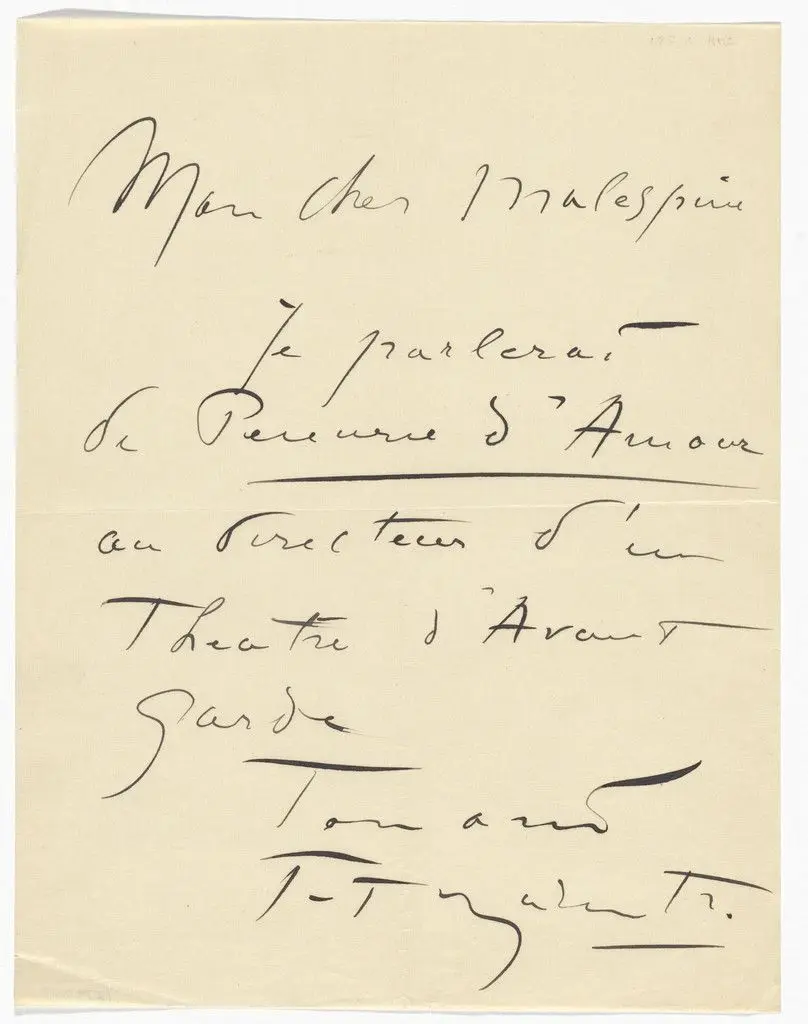 Mon cher Malespine
Je parlerai
de Penurie d'Amour
au directeur d'un
Theatre d'Avant
garde
Ton ami
F.T Marinetti